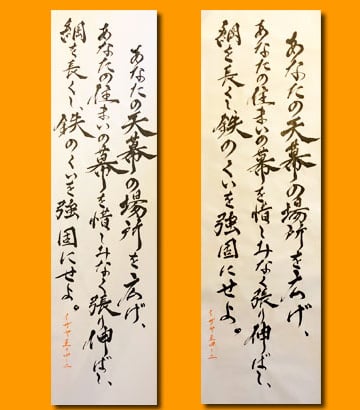 あなたの天幕の場所を広げ、
あなたの住まいの幕を惜しみなく張り伸ばし、
綱を長くし、鉄のくいを強固にせよ。
あなたの天幕の場所を広げ、
あなたの住まいの幕を惜しみなく張り伸ばし、
綱を長くし、鉄のくいを強固にせよ。